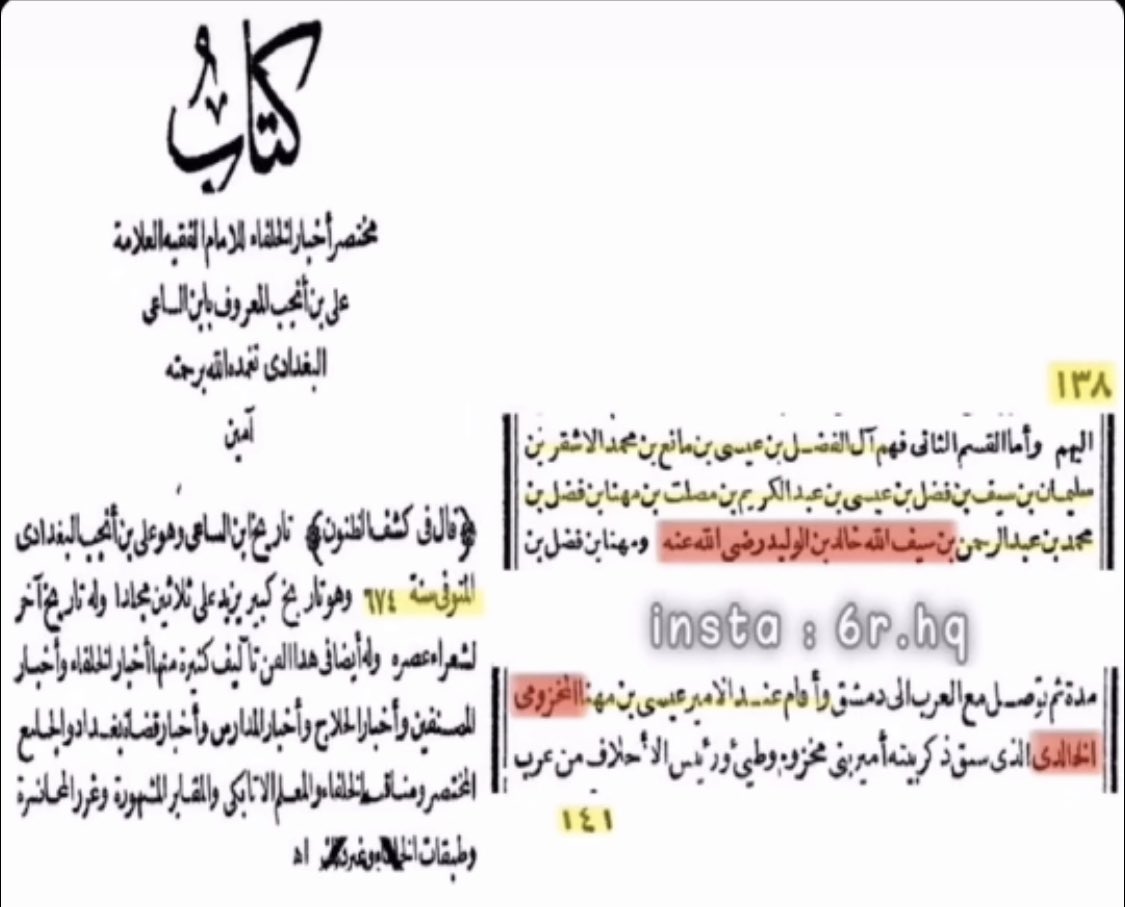 كتاب
مختصر أخبار الخلفاء للامام الفقيه العلامة
على بن أنجب المعروف بابن الساعى
البغدادى تغمده الله برحمته
آمين
﴿قال فى كشف الظنون﴾ تاريخ ابن الساعى وهو على بن أنجب البغدادى
المتوفى سنة ٦٧٤ وهو تاريخ كبير يزيد على ثلاثين مجلدا وله تاريخ آخر
لشعراء عصره وله أيضا فى هذا الفن تآليف كثيرة منها أخبار الخلفاء وأخبار
المصنفين وأخبار الحلاج وأخبار المدارس وأخبار قضاة بغداد والجامع
المختصر ومناقب الخلفاء والمعلم الاتابكى والمقابر المشهورة وغرر المحاضرة
وطبقات اه
١٣٨
اليهم وأما القسم الثانى فهم آل الفضل بن عيسى بن مانع بن محمد الاشقر بن
سليمان بن سيف بن فضل بن عيسى بن عبد الكريم بن مصلت بن مهنا بن فضل بن
محمد بن عبد الرحمن بن سيف الله خالد بن الوليد رضى الله عنه ومهنا بن فضل بن
insta : 6r.hq
مدة ثم توصل مع العرب الى دمشق وأقام عند الامير عيسى بن مهنا المخزومى
الخالدى الذى سبق ذكر بيته أمير بنى مخزوم وطيئ ورئيس الأحلاف من عرب
١٤١